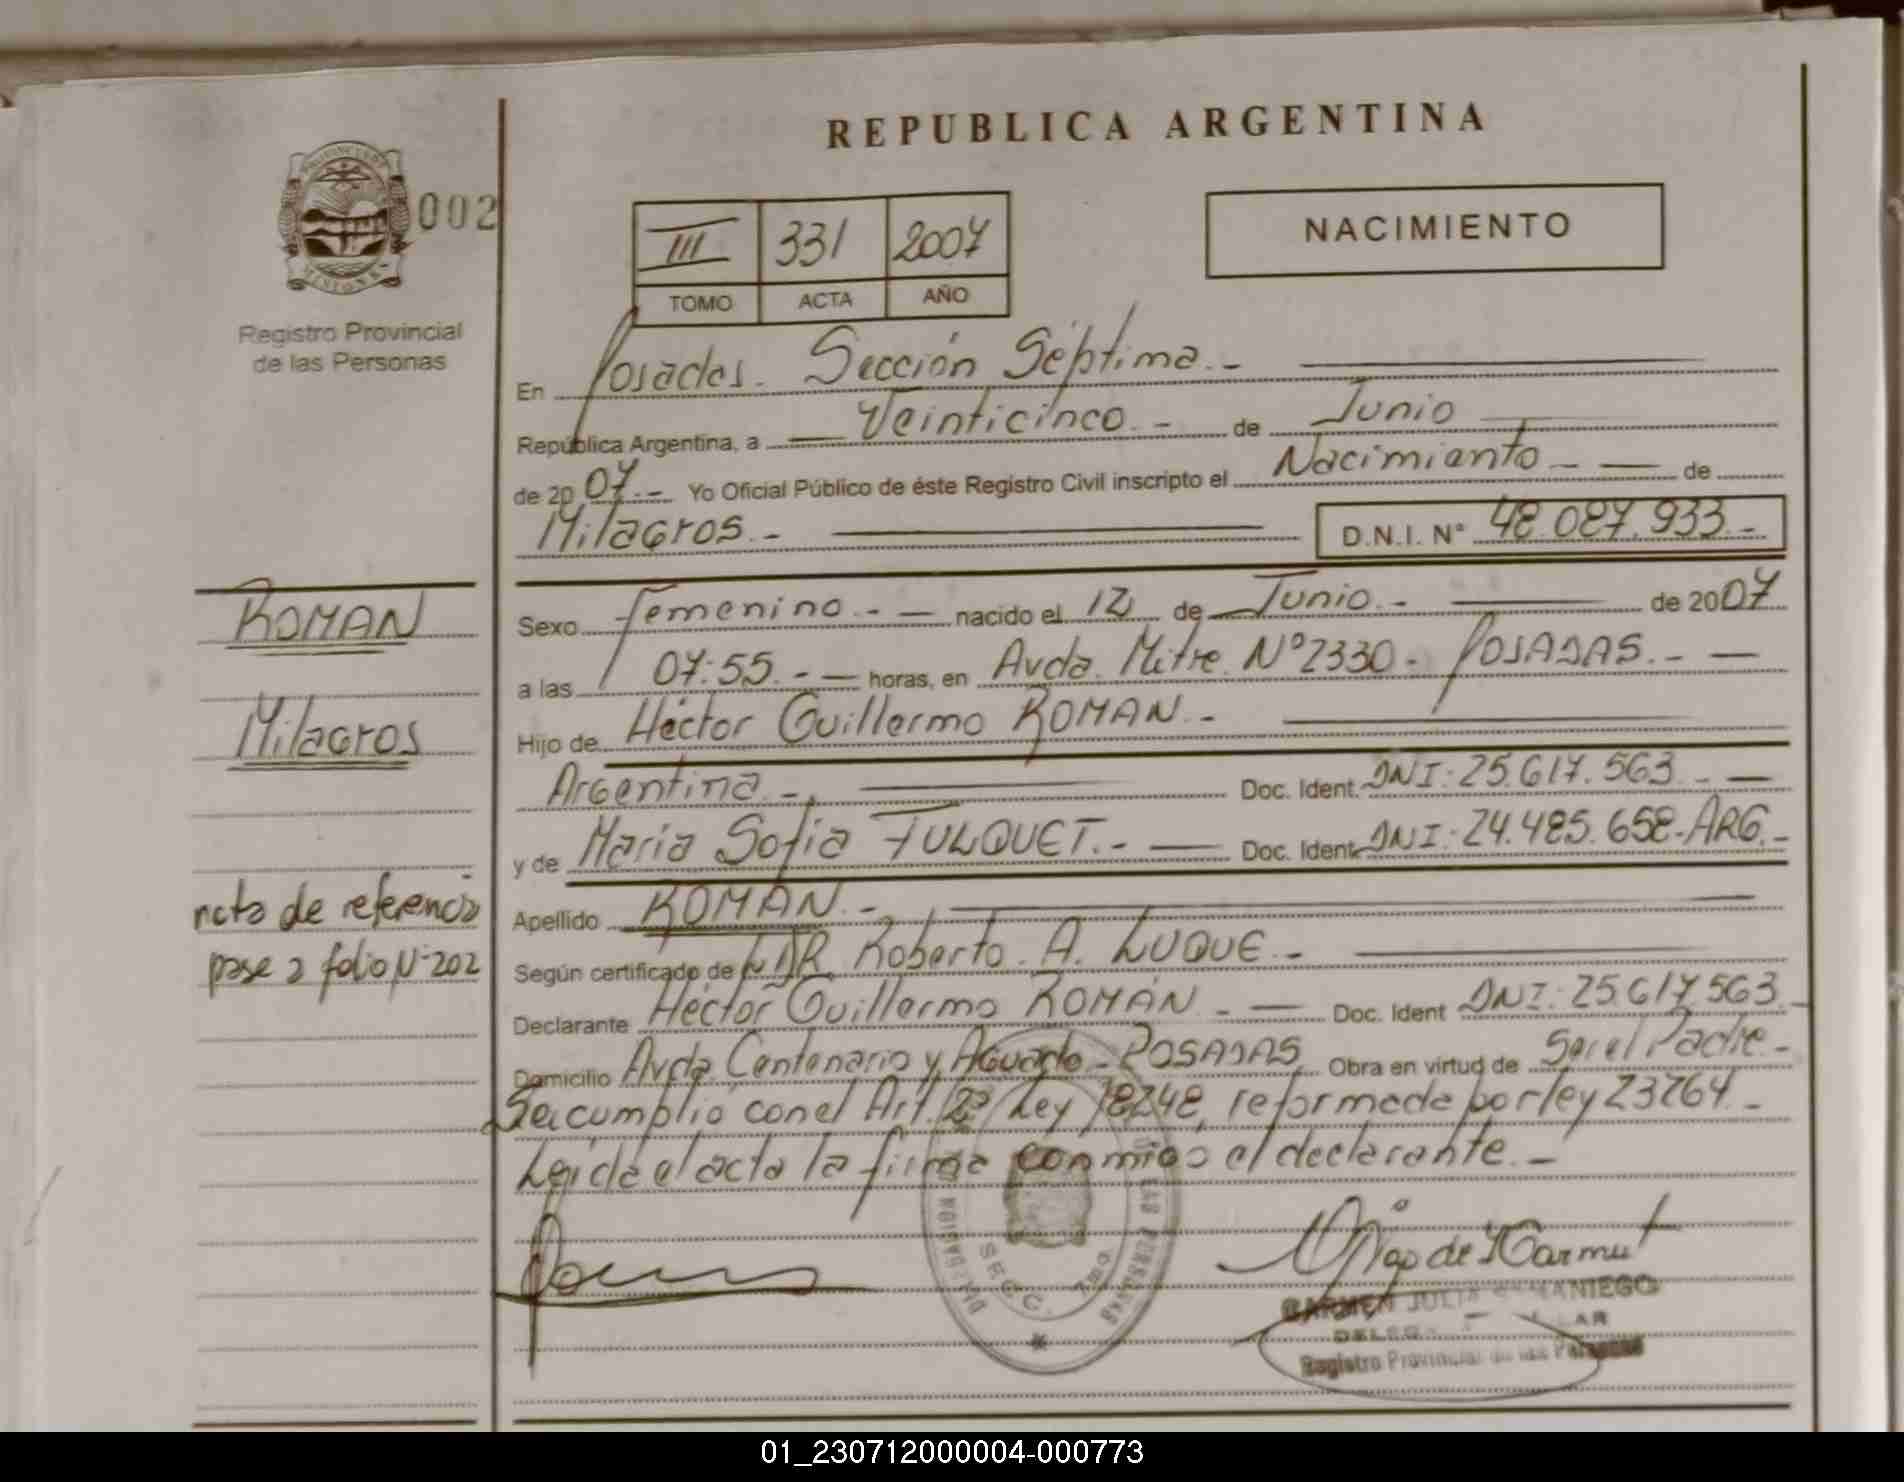 REPUBLICA ARGENTINA
PROVINCIA DE
MISIONES
002
Registro Provincial
de las Personas
III 331 2007
TOMO ACTA AÑO
NACIMIENTO
En Posadas. Sección Séptima.-
República Argentina, a Veinticinco.- de Junio
de 2007.- Yo Oficial Público de éste Registro Civil inscripto el Nacimiento - de
Milagros.- D.N.I. N° 48.087.933.-
ROMAN
Milagros
Sexo Femenino.- nacido el 12 de Junio.- de 2007
a las 07:55.- horas, en Avda. Mitre N°2330- POSADAS.-
Hijo de Héctor Guillermo ROMAN.-
Argentina.- Doc. Ident. DNI: 25.617.563.-
y de María Sofia FULQUET.- Doc. Ident DNI: 24.485.658-ARG.-
nota de referencia
pase a folio N-202
Apellido ROMAN.-
Según certificado de DR. Roberto A. LUQUE.-
Declarante Héctor Guillermo ROMÁN.- Doc. Ident DNI: 25.617.563.-
Domicilio Avda. Centenario y Aguado - POSADAS Obra en virtud de Ser el Padre.-
Se cumplio con el Art. 2º Ley 18248, reformada por ley 23264.-
Leida el acta la firma conmigo el declarante.-
DELEGACION DE LAS PERSONAS
SECC. 7ma
CARMEN JULIA SAMANIEGO
Registro Provincial de las Personas
01_230712000004-000773